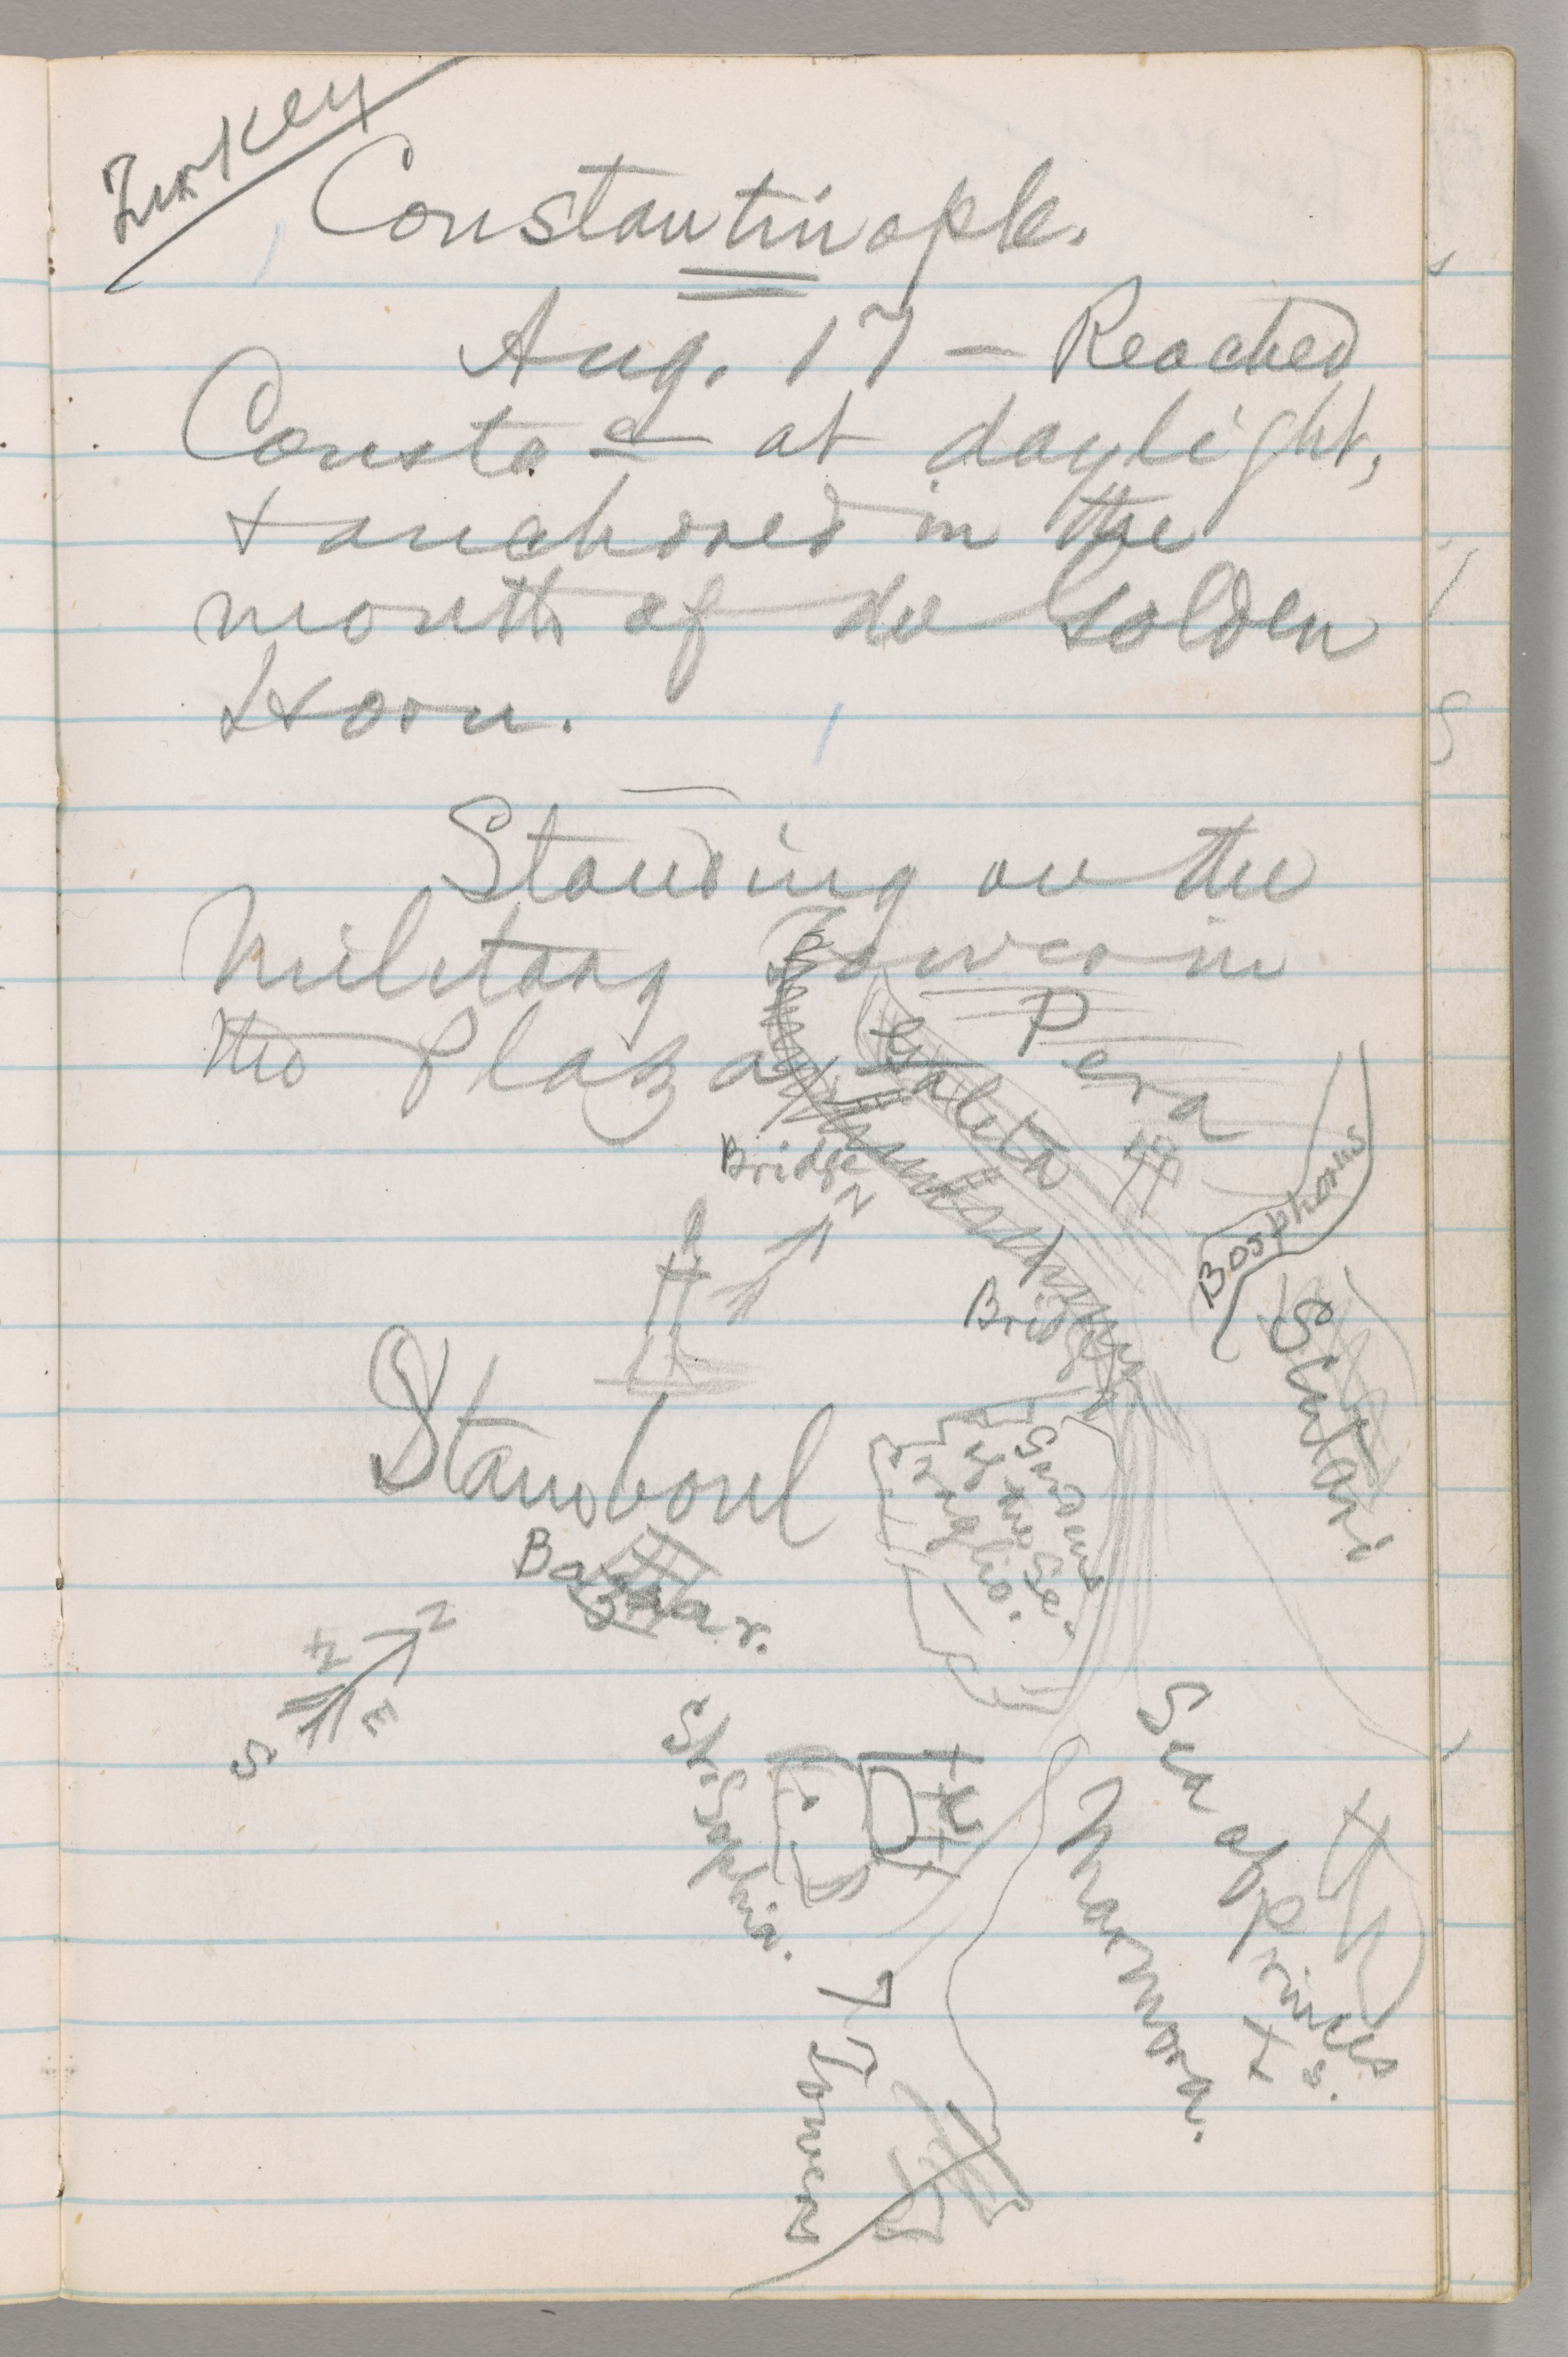 Turkey
Constantinople.
Aug. 17 — Reached
Consta- e at daylight,
+ anchored in the
mouth of the Golden
Horn.
Standing on the
Military Tower in
the Plaza
Pera
Galata
Bridge
N
Bosphorus
Bridge
Scutari
Stamboul
Gardens
of the Se-
raglio.
Bazaar.
N
E
S
St. Sophia.
Sea of
Marmora.
Princes
Is.
Tower